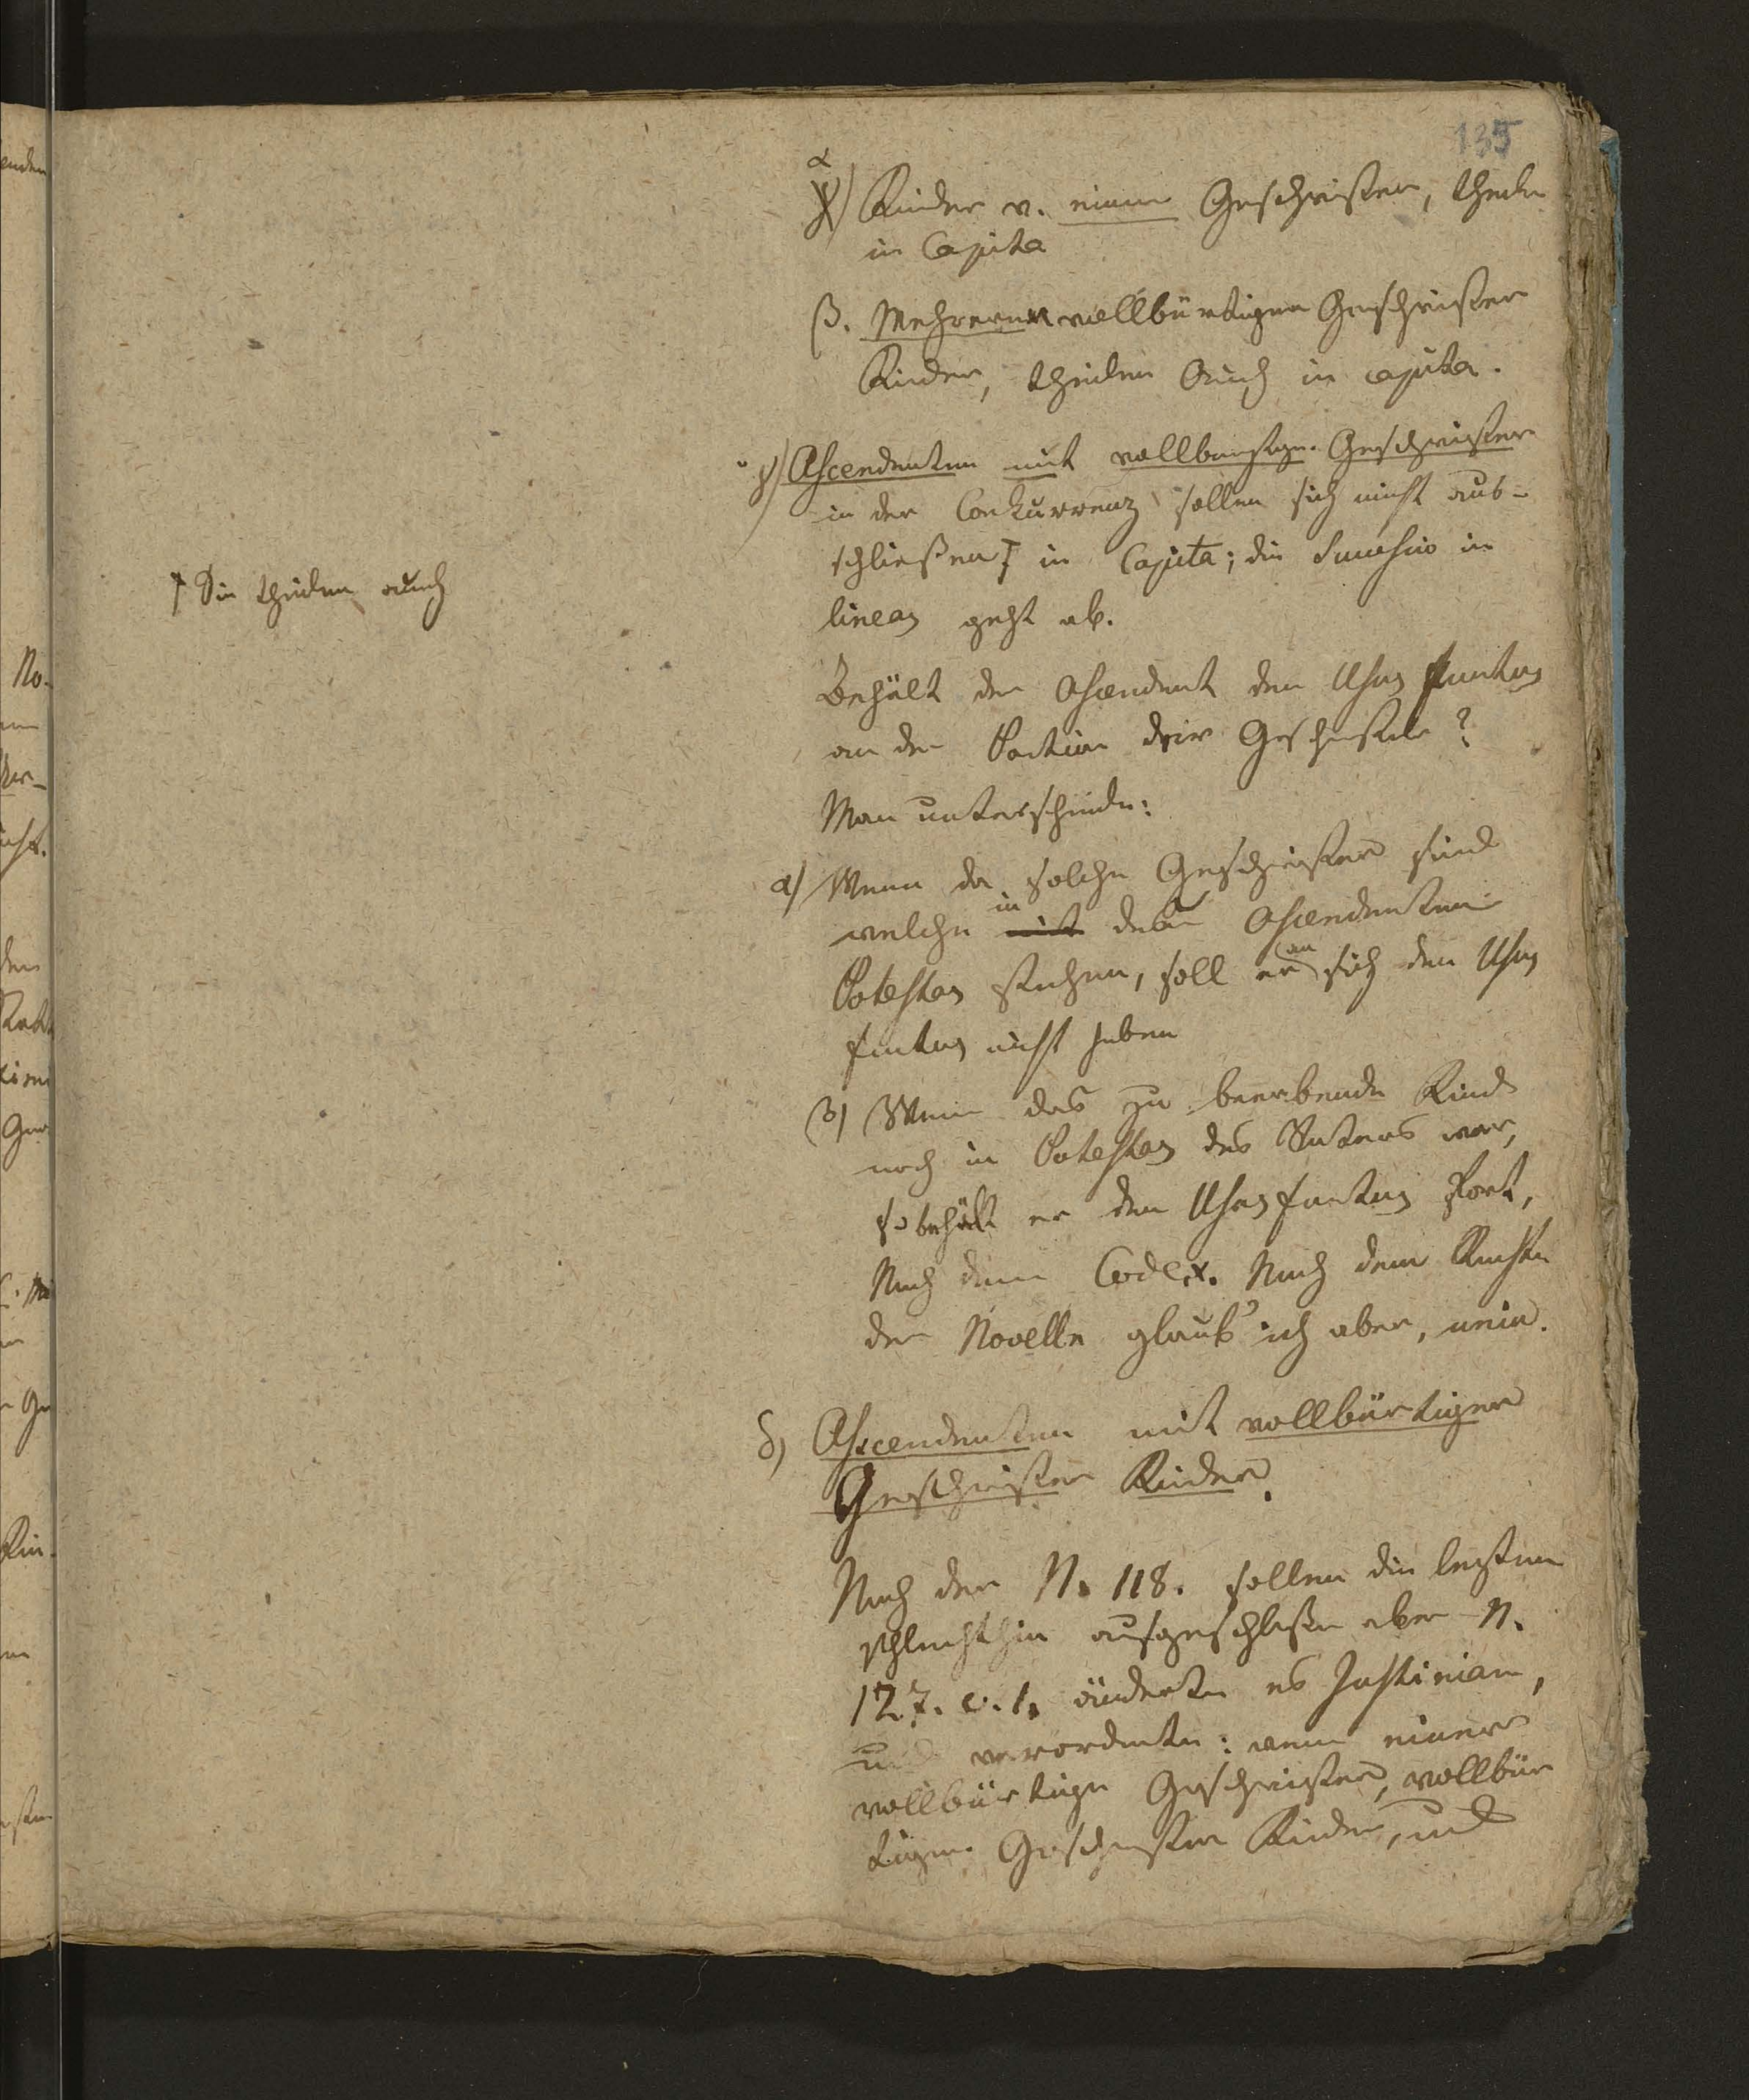 135
α) Kinder v. einem Geschwister, theilen
in Capita
β. Mehreren vollbürtigen Geschwister
Kinder, theilen Auch in capita.
γ) Ascendenten mit vollbürtigen Geschwister
in der Conkurrenz sollen sich nicht aus-
schließen † in Capita; die Successio in
lineas geht ab.
† Sie theilen auch
Behält der Ascendent den Usus fructus
an der Portion der Geschwister?
Man unterscheide:
α) Wenn da solche Geschwister sind
welche in der Ascendenten
Potestas stehen, soll er an sich den Usus
fructus nicht haben
β) Wenn das zu beerbende Kind
noch in Potestas des Vaters war,
so behält er den Usus fructus fort,
Nach dem Codex. Nach dem Rechte
der Novelle glaub' ich aber, nein.
δ) Ascendenten mit vollbürtiger
Geschwister Kinder.
Nach der N. 118. sollen die letztern
schlechthin ausgeschlossen aber N.
127. c. 1. änderte es Justinian,
und verordnete: wenn einer
vollbürtige Geschwister, vollbür
tiger Geschwister Kinder, und